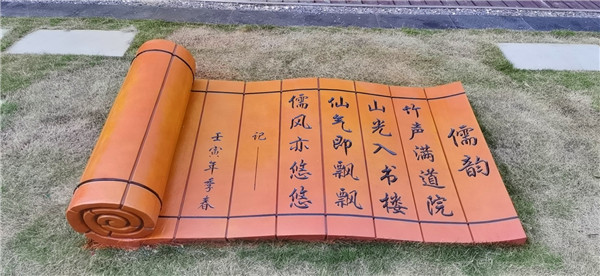 儒韵
竹声满道院
山光入书楼
仙气即飘飘
儒风亦悠悠
记——
壬寅年季春